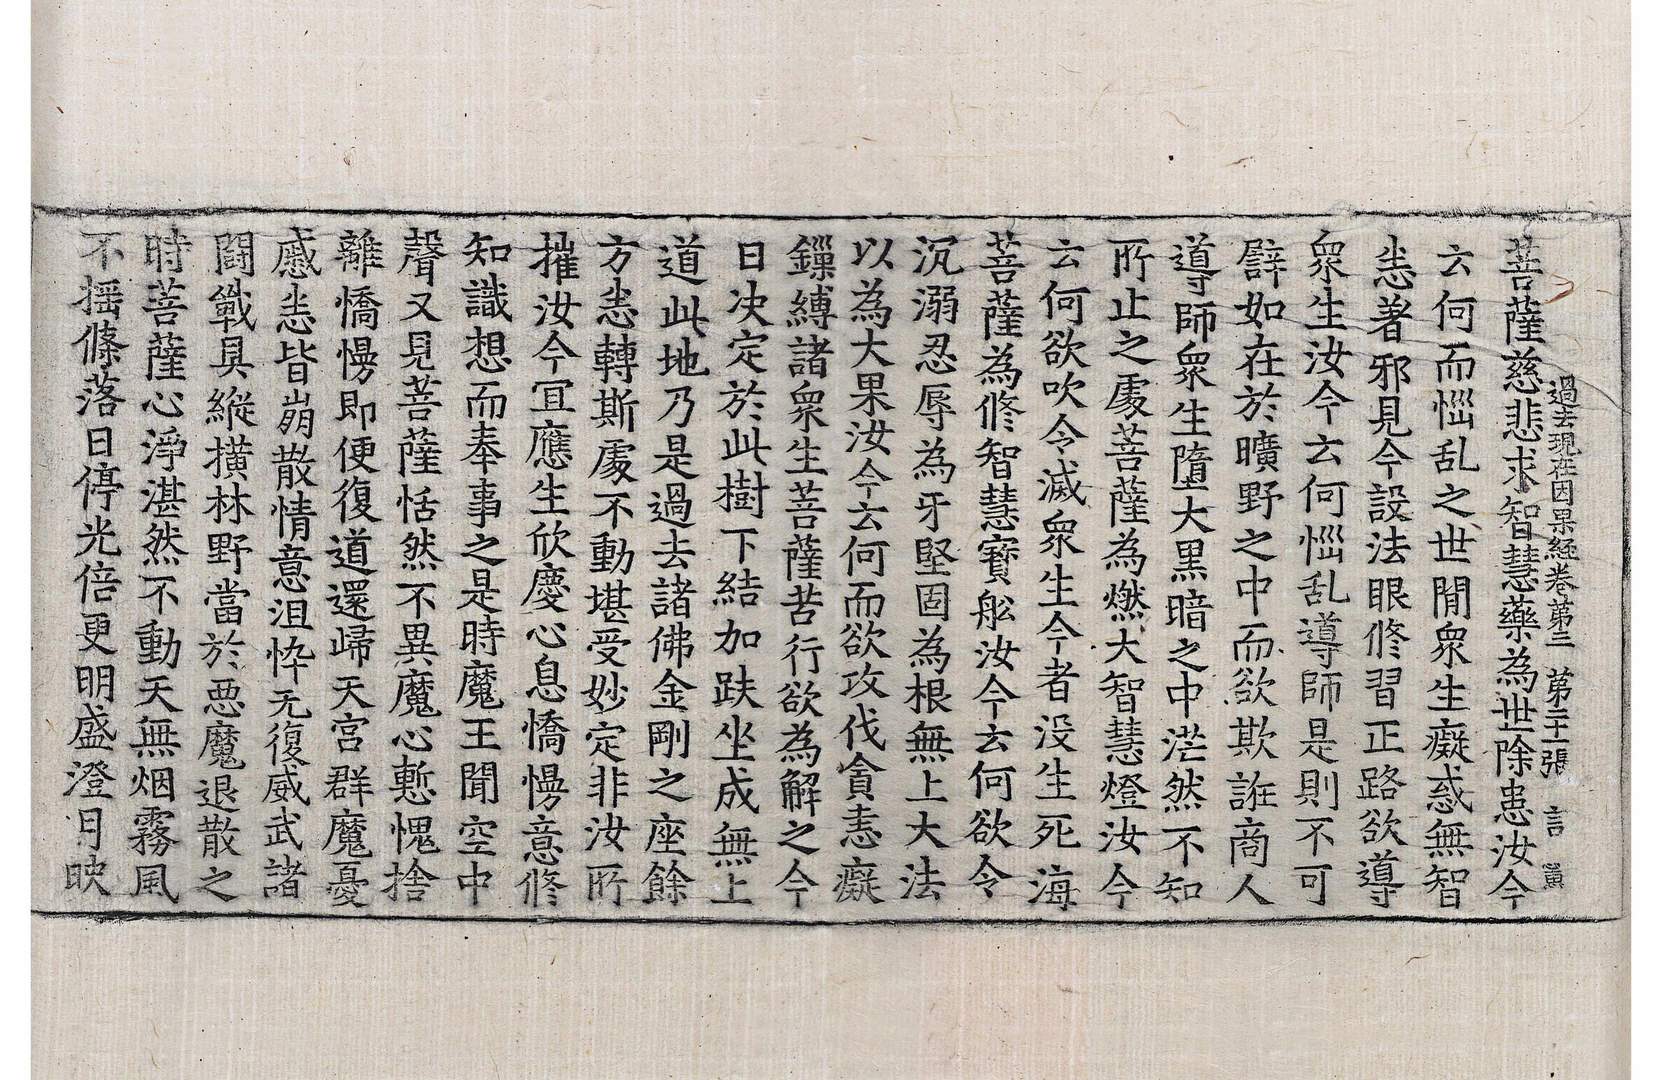 過去現在因果經卷第三 第二十張 言 黨
菩薩慈悲求智慧藥為世除患汝今
云何而惱乱之世閒衆生癡惑無智
悉著邪見今設法眼修習正路欲導
衆生汝今云何惱乱導師是則不可
譬如在於曠野之中而欲欺誑商人
導師衆生墮大黑暗之中茫然不知
所止之處菩薩為燃大智慧燈汝今
云何欲吹令滅衆生今者没生死海
菩薩為修智慧寶舩汝今云何欲令
沉溺忍辱為牙堅固為根無上大法
以為大果汝今云何而欲攻伐貪恚癡
鏁縛諸衆生菩薩苦行欲為解之今
日决定於此樹下結加趺坐成無上
道此地乃是過去諸佛金剛之座餘
方悉轉斯處不動堪受妙定非汝所
摧汝今宜應生欣慶心息憍慢意修
知識想而奉事之是時魔王聞空中
聲又見菩薩恬然不異魔心慙愧捨
離憍慢即便復道還歸天宮群魔憂
慼悉皆崩散情意沮忰无復威武諸
鬪戰具縱橫林野當於惡魔退散之
時菩薩心淨湛然不動天無烟霧風
不揺條落日停光倍更明盛澄月映